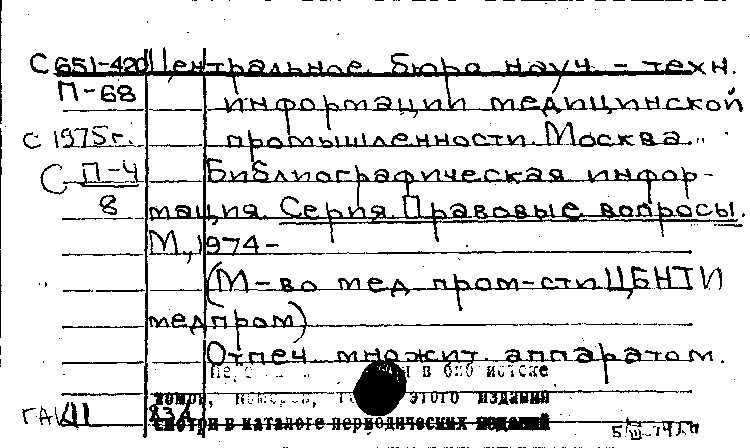 С 651-420 Центральное бюро науч. - техн.
П-68 информации медицинской
С 1975г. промышленности. Москва.
С П-4 Библиографическая инфор-
8 мация. Серия. Правовые вопросы.
М., 1974-
(М-во мед. пром-сти. ЦБНТИ
медпром)
Отпеч. множит. аппаратом.
в библиотеке
номов, номеров, этого издания
смотри в каталоге периодических изданий